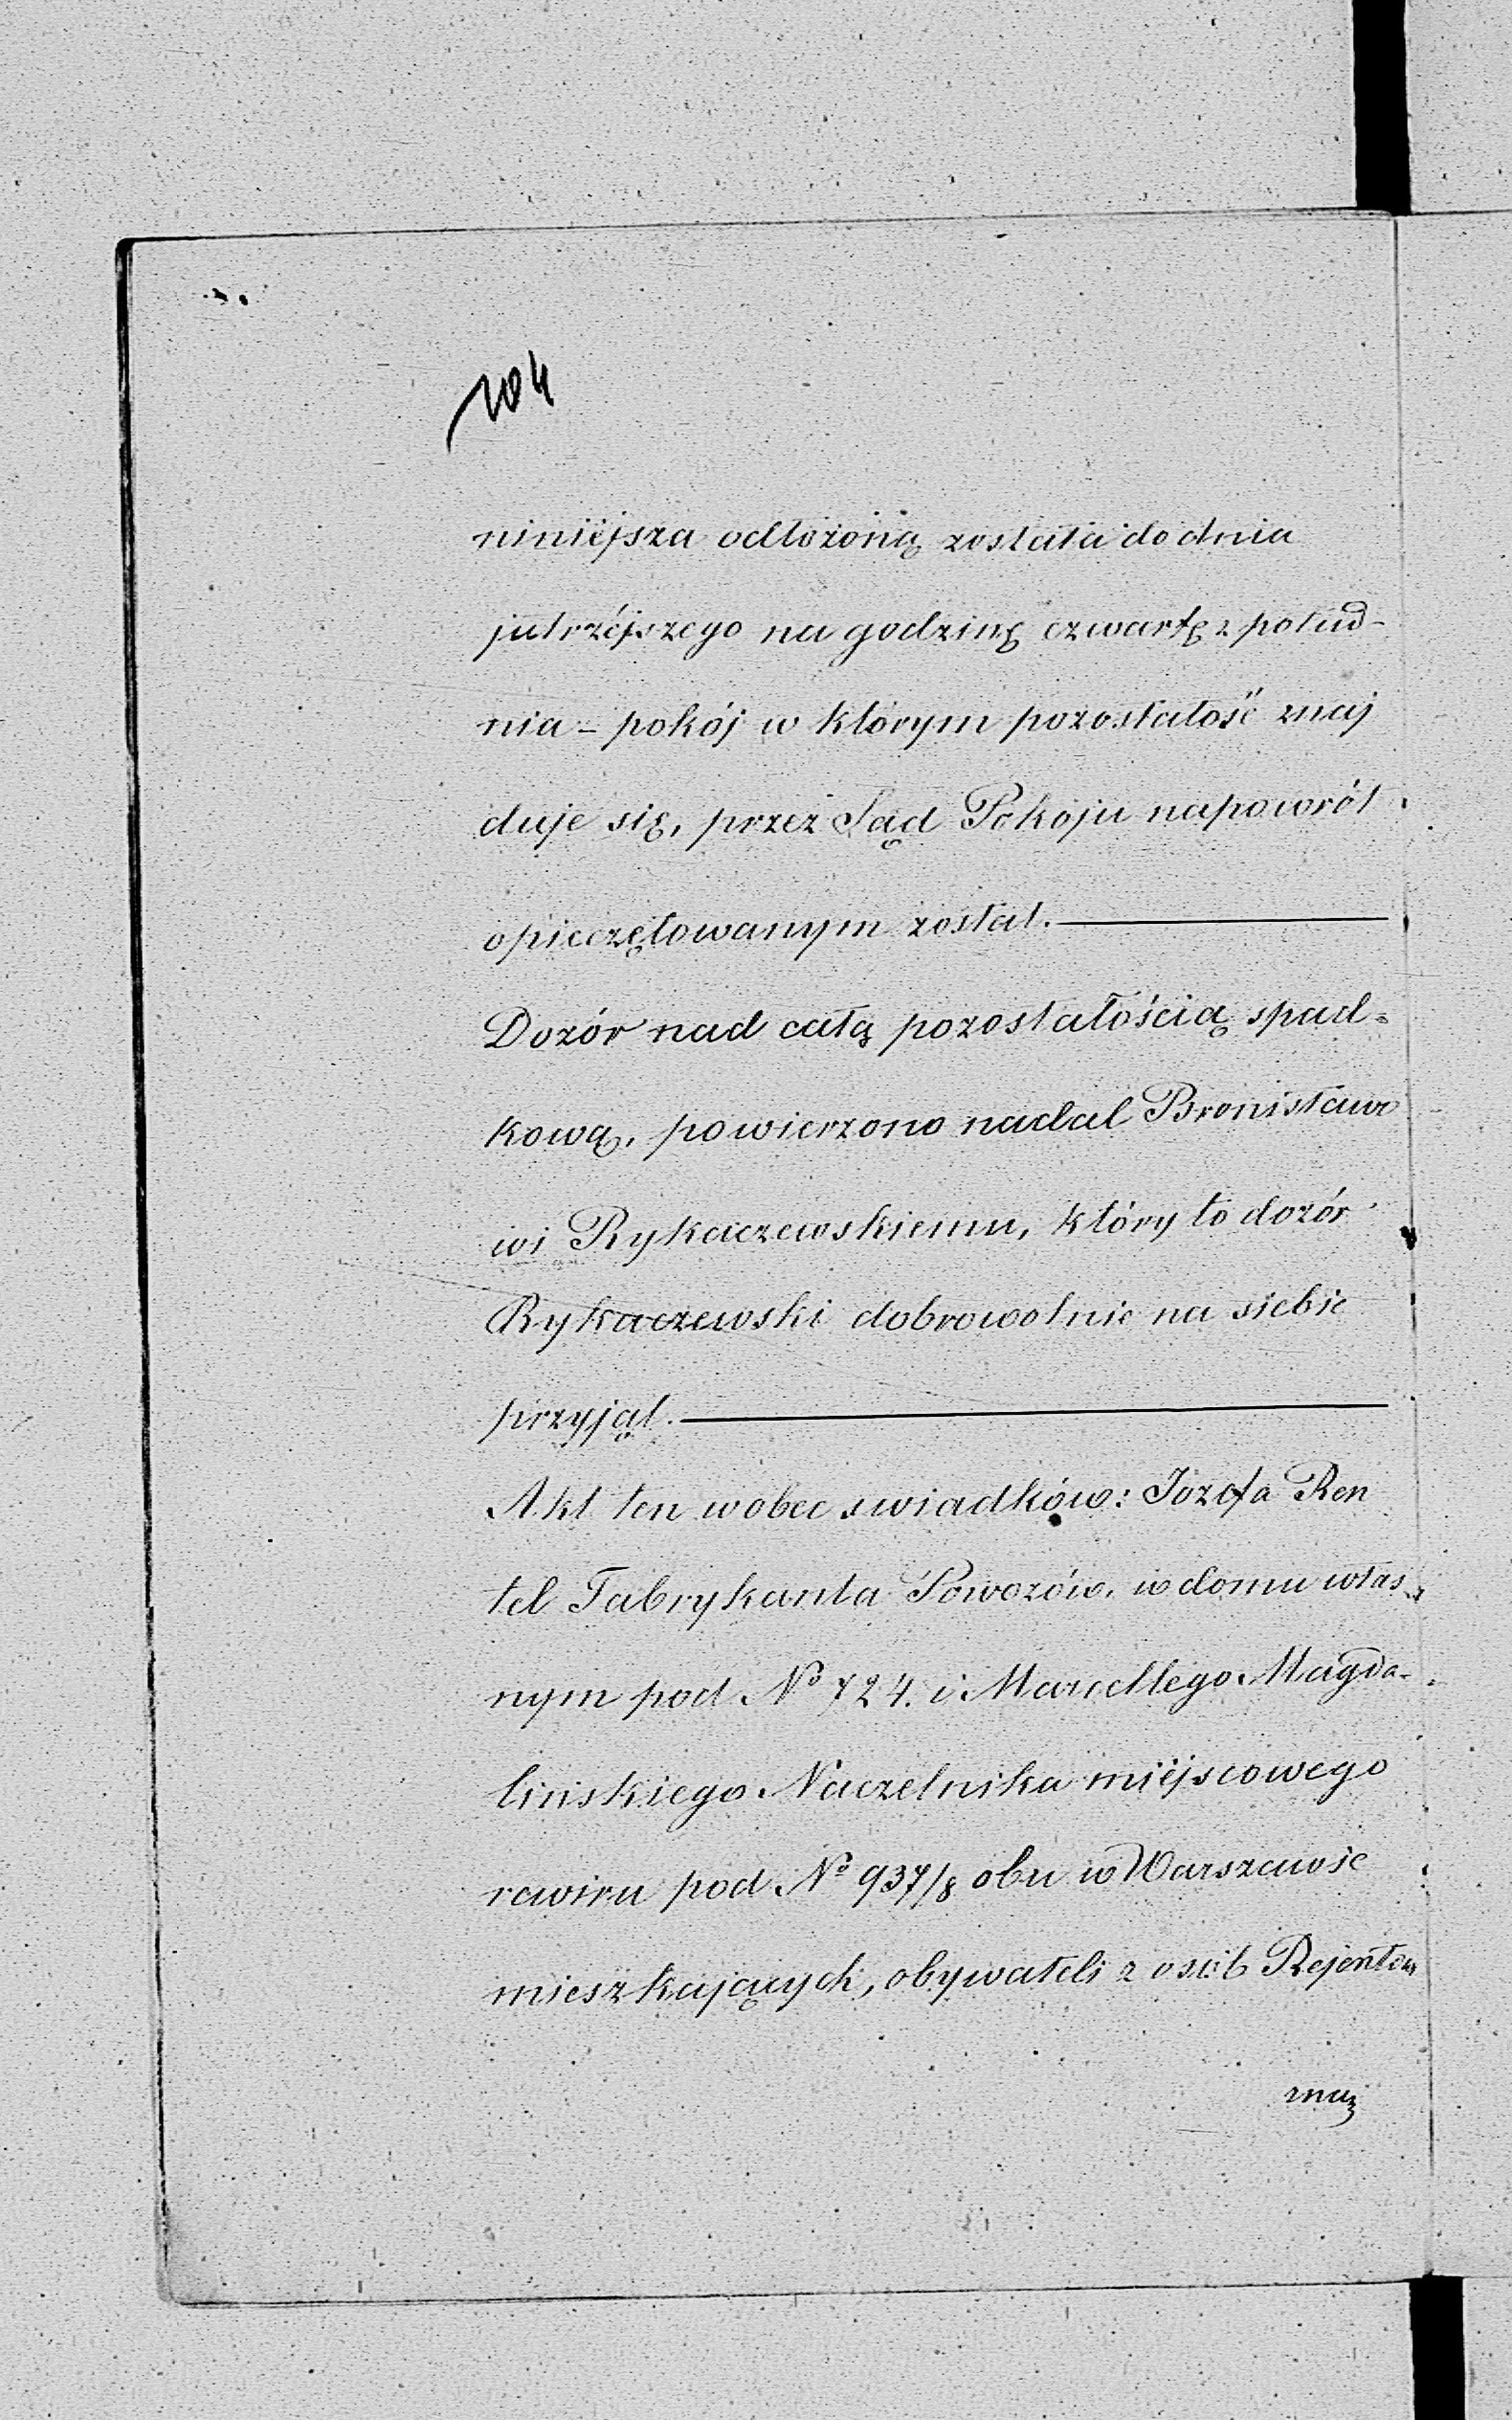 104
niniéjsza odłożoną została do dnia
jutrzéjszego na godzinę czwartę z połud-
nia - pokój w którym pozostałość znaj
duje się, przez Sąd Pokoju napowrót
opieczętowanym został.
Dozór nad całą pozostałością spad-
kową, powierzono nadal Bronisławo
wi Rykaczewskiemu, który to dozór
Rykaczewski dobrowolnie na siebie
przyjął.
Akt ten wobec swiadków: Józefa Ren
tel Fabrykanta Powozów, w domu włas-
nym pod No 724. i Marcellego Magda-
lińskiego Naczelnika miéjscowego
rewiru pod No 937/8 obu w Warszawie
mieszkających, obywateli z osób Rejentow
zna